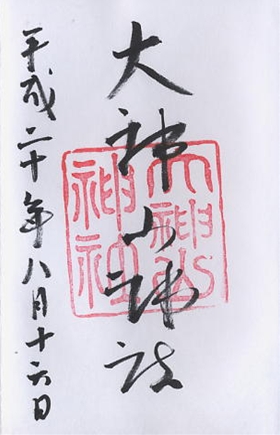 大神山神社
大神山
神社
平成二十年八月十六日